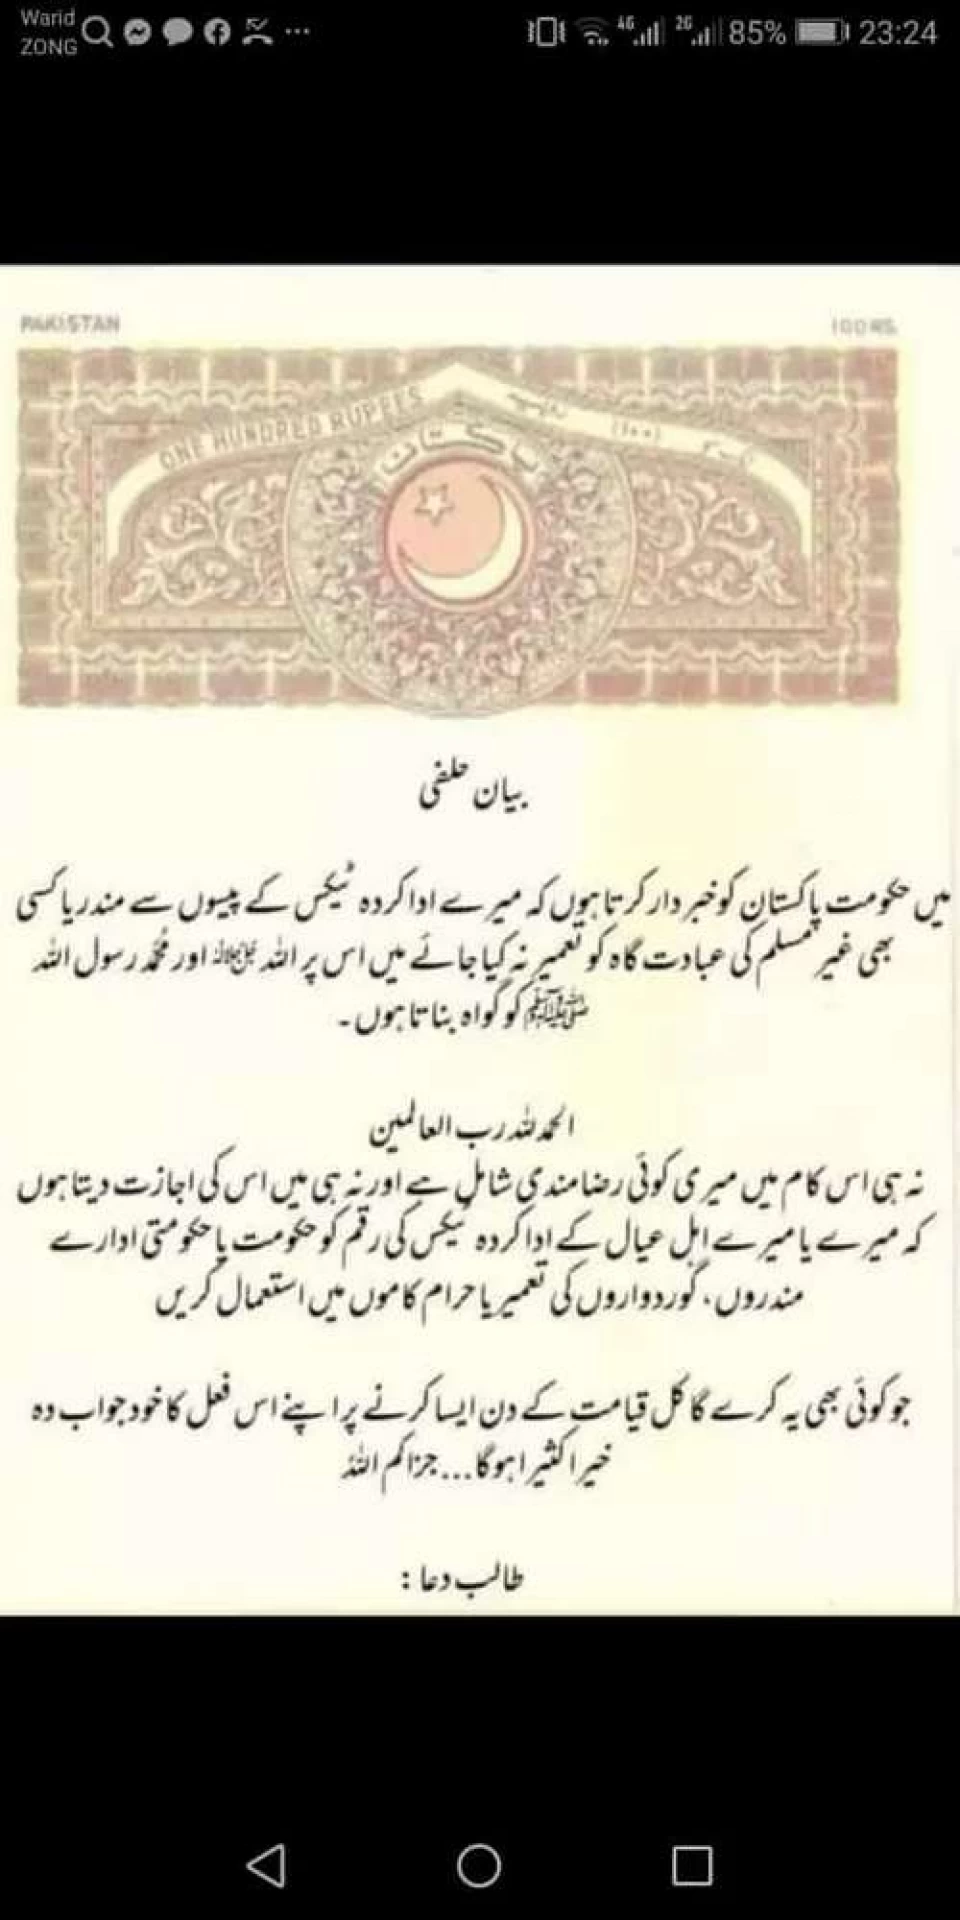 Warid
ZONG
4G
2G
85%
23:24
PAKISTAN
100 RS.
ONE HUNDRED RUPEES
پاکستان
بیان حلفی
میں حکومت پاکستان کو خبردار کرتا ہوں کہ میرے ادا کردہ ٹیکس کے پیسوں سے مندر یا کسی
بھی غیر مسلم کی عبادت گاہ کو تعمیر نہ کیا جائے میں اس پر اللہ ﷻ اور محمد رسول اللہ
ﷺ کو گواہ بناتا ہوں۔
الحمدللہ رب العالمین
نہ ہی اس کام میں میری کوئی رضامندی شامل ہے اور نہ ہی میں اس کی اجازت دیتا ہوں
کہ میرے یا میرے اہل عیال کے ادا کردہ ٹیکس کی رقم کو حکومت یا حکومتی ادارے
مندروں، گوردواروں کی تعمیر یا حرام کاموں میں استعمال کریں
جو کوئی بھی یہ کرے گا کل قیامت کے دن ایسا کرنے پر اپنے اس فعل کا خود جواب دہ
خیرا کثیرا ہوگا... جزاکم اللہُ
طالب دعا :